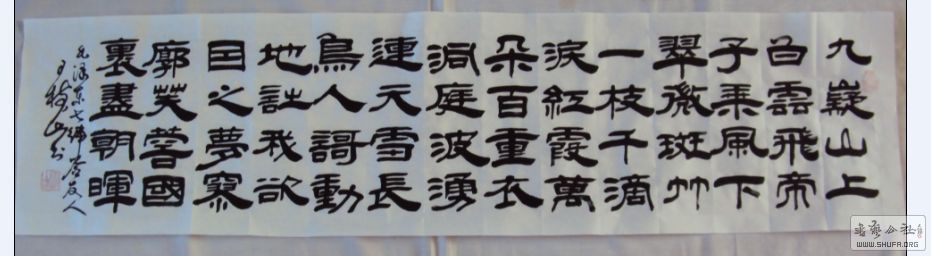 九嶷山上
白雲飛帝
子乘風下
翠微斑竹
一枝千滴
淚紅霞萬
朵百重衣
洞庭波湧
連天雪長
島人謌動
地詩我欲
因之夢寥
廓芙蓉國
裏盡朝暉
毛澤東七律答友人
山书
书艺公社
WWW.SHUFA.ORG